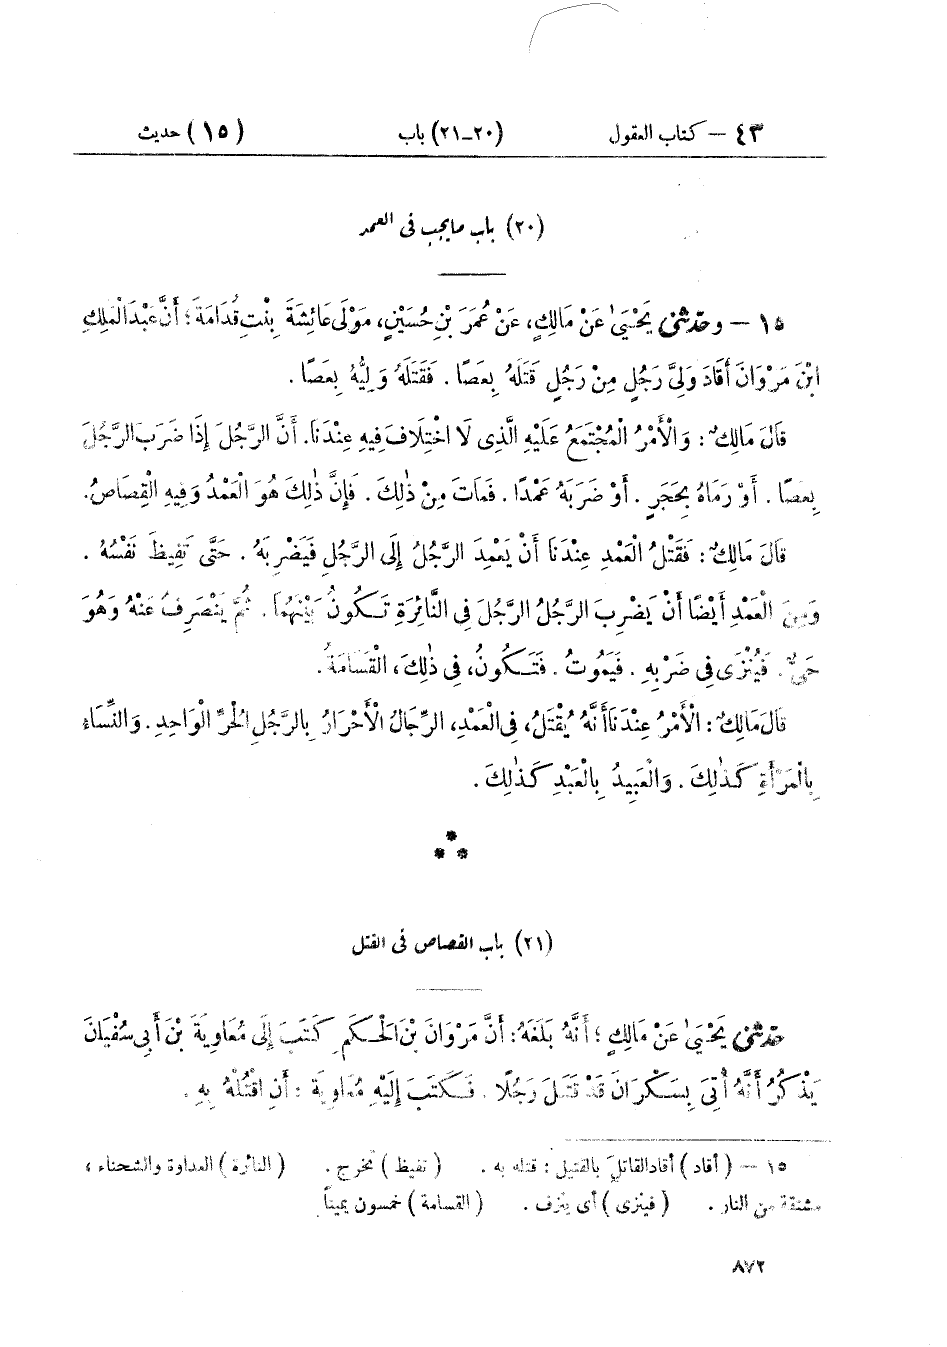 ٤٣ – كتاب العقول (٢٠-٢١) باب (١٥) حديث
(٢٠) باب ما يجب فى العمد
١٥ – وحدثنى يَحْيَىٰ عَنْ مَالِكٍ، عَنْ عُمَرَ بْنِ حُسَيْنٍ، مَوْلَى عَائِشَةَ بِنْتِ قُدَامَةَ؛ أَنَّ عَبْدَ الْمَلِكِ
ابْنَ مَرْوَانَ أَقَادَ وَلِىَّ رَجُلٍ مِنْ رَجُلٍ قَتَلَهُ بِعَصًا. فَقَتَلَهُ وَلِيُّهُ بِعَصًا.
قَالَ مَالِكٌ: وَالْأَمْرُ الْمُجْتَمَعُ عَلَيْهِ الَّذِى لَا اخْتِلَافَ فِيهِ عِنْدَنَا. أَنَّ الرَّجُلَ إِذَا ضَرَبَ الرَّجُلَ
بِعَصًا. أَوْ رَمَاهُ بِحَجَرٍ. أَوْ ضَرَبَهُ عَمْدًا. فَمَاتَ مِنْ ذٰلِكَ. فَإِنَّ ذٰلِكَ هُوَ الْعَمْدُ وَفِيهِ الْقِصَاصُ.
قَالَ مَالِكٌ: فَقَتْلُ الْعَمْدِ عِنْدَنَا أَنْ يَعْمِدَ الرَّجُلُ إِلَى الرَّجُلِ فَيَضْرِبَهُ. حَتَّى تَفِيظَ نَفْسُهُ.
وَمِنَ الْعَمْدِ أَيْضًا أَنْ يَضْرِبَ الرَّجُلُ الرَّجُلَ فِى النَّائِرَةِ تَكُونُ بَيْنَهُمَا. ثُمَّ يَنْصَرِفُ عَنْهُ وَهُوَ
حَىٌّ. فَيُنْزَى فِى ضَرْبِهِ. فَيَمُوتُ. فَتَكُونُ، فِى ذٰلِكَ، الْقَسَامَةُ.
قَالَ مَالِكٌ: الْأَمْرُ عِنْدَنَا أَنَّهُ يُقْتَلُ، فِى الْعَمْدِ، الرِّجَالُ الْأَحْرَارُ بِالرَّجُلِ الْحُرِّ الْوَاحِدِ. وَالنِّسَاءُ
بِالْمَرْأَةِ كَذٰلِكَ. وَالْعَبِيدُ بِالْعَبْدِ كَذٰلِكَ.
(٢١) باب القصاص فى القتل
حدثنى يَحْيَىٰ عَنْ مَالِكٍ؛ أَنَّهُ بَلَغَهُ: أَنَّ مَرْوَانَ بْنَ الْحَكَمِ كَتَبَ إِلَى مُعَاوِيَةَ بْنَ أَبِى سُفْيَانَ
يَذْكُرُ أَنَّهُ أُتِىَ بِسَكْرَانَ قَدْ قَتَلَ رَجُلًا. فَكَتَبَ إِلَيْهِ مُعَاوِيَةُ: أَنِ اقْتُلْهُ بِهِ.
١٥ – (أقاد) أقاد القاتلَ بالقتيل: قتله به. (تفيظ) تخرج. (النائرة) العداوة والشحناء،
مشتقة من النار. (فينزى) أى ينزف. (القسامة) خمسون يميناً
٨٧٢